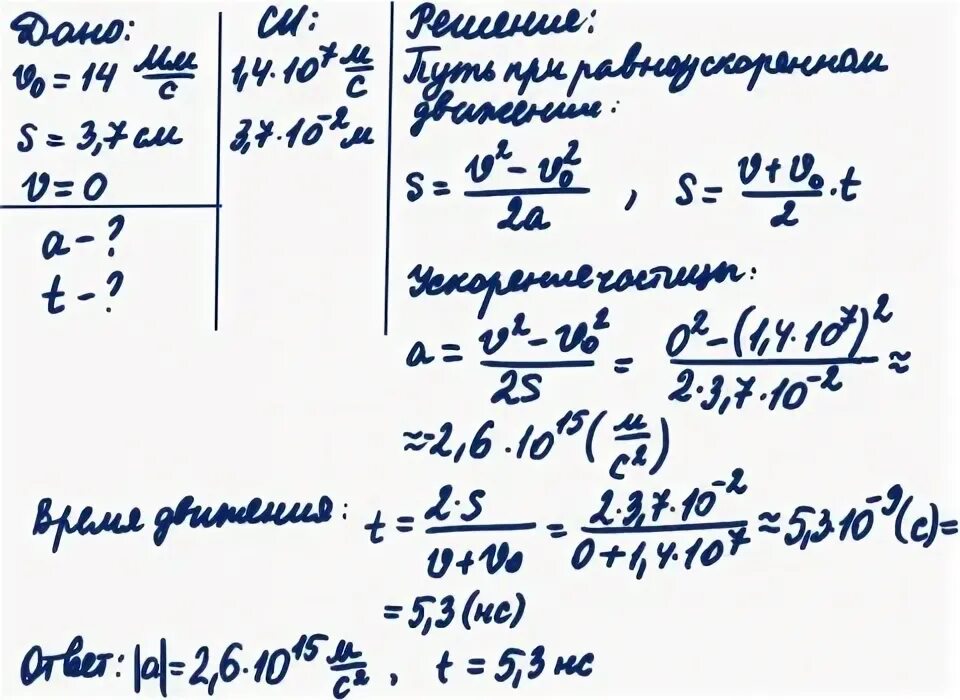 Дано:
v₀ = 14 Мм/с
s = 3,7 см
v = 0
a - ?
t - ?
СИ:
1,4·10⁷ м/с
3,7·10⁻² м
Решение:
Путь при равноускоренном
движении:
s = (v² - v₀²)/(2a) , s = (v + v₀)/2 · t
Ускорение частицы:
a = (v² - v₀²)/(2s) = (0² - (1,4·10⁷)²)/(2·3,7·10⁻²) ≈
≈ -2,6·10¹⁵ (м/с²)
Время движения: t = (2·s)/(v + v₀) = (2·3,7·10⁻²)/(0 + 1,4·10⁷) ≈ 5,3·10⁻⁹ (с) =
= 5,3 (нс)
Ответ: |a| = 2,6·10¹⁵ м/с² , t = 5,3 нс